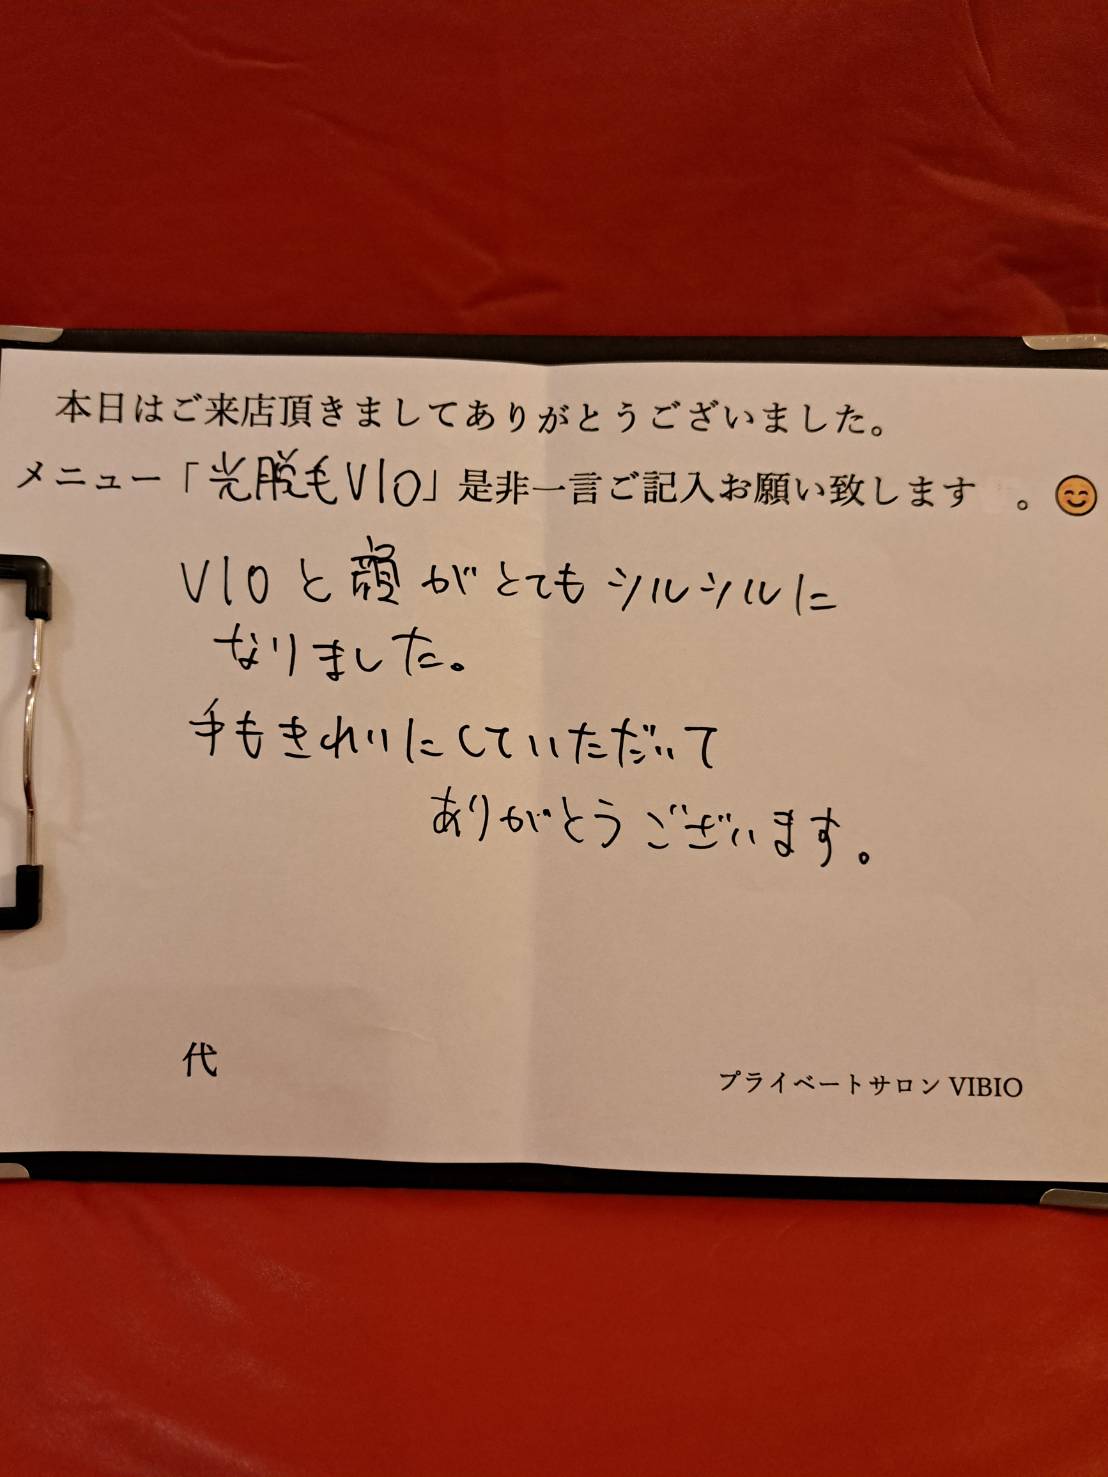 本日はご来店頂きましてありがとうございました。
メニュー「光脱毛VIO」是非一言ご記入お願い致します 。😊
VIOと顔がとてもシルシルに
なりました。
手もきれいにしていただいて
ありがとうございます。
代
プライベートサロン VIBIO